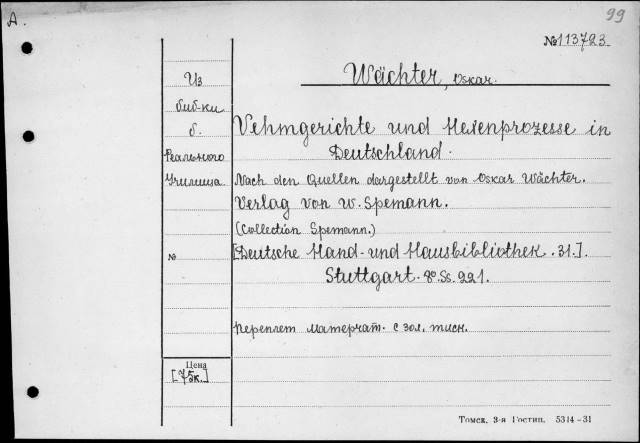 A.
99
№113723.
Wächter, Oskar.
Из
биб-ки
б.
Реального
Училища
Vehmgerichte und Hexenprozesse in
Deutschland.
Nach den Quellen dargestellt von Oskar Wächter.
Verlag von W. Spemann.
(Collection Spemann.)
№
[Deutsche Hand- und Hausbibliothek. 31.].
Stuttgart. 8º. Ss. 221.
Переплет матерчат. с зол. тисн.
Цена
[75к.]
Томск. 3-я Гостип. 5314-31